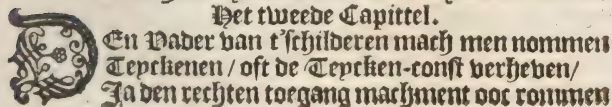 Het tweede Capittel.
DEn Vader van t'schilderen mach men nommen
Teyckenen / oft de Teycken-const verheven /
Ja den rechten toegang machment ooc rommen